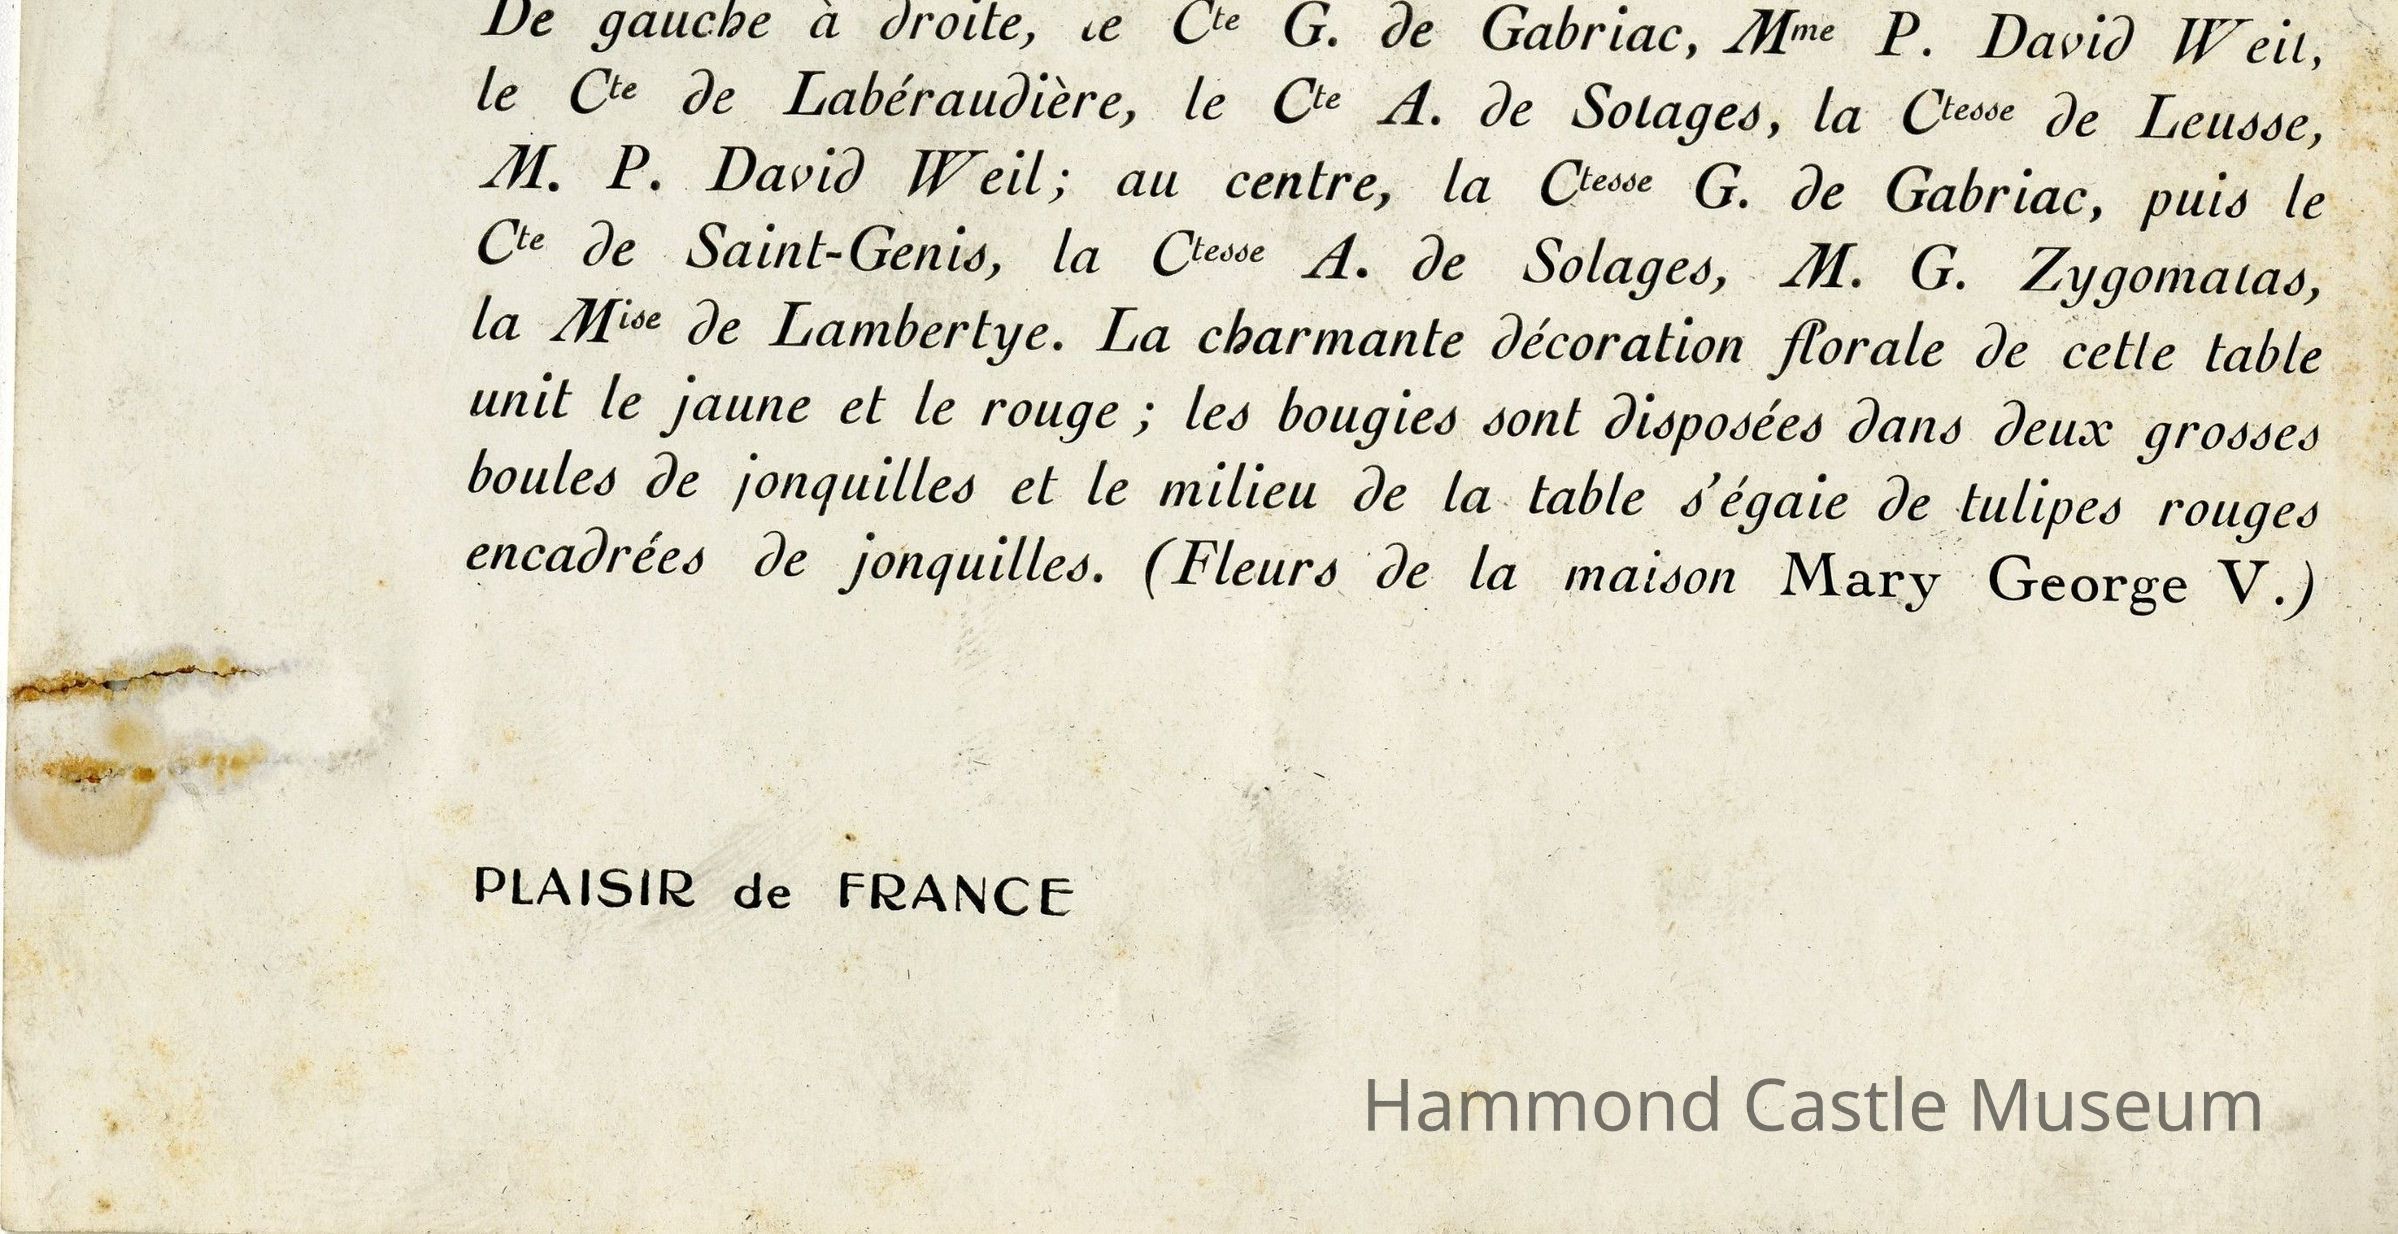 De gauche à droite, le Cte G. de Gabriac, Mme P. David Weil,
le Cte de Labéraudière, le Cte A. de Solages, la Ctesse de Leusse,
M. P. David Weil; au centre, la Ctesse G. de Gabriac, puis le
Cte de Saint-Genis, la Ctesse A. de Solages, M. G. Zygomalas,
la Mise de Lambertye. La charmante décoration florale de cette table
unit le jaune et le rouge ; les bougies sont disposées dans deux grosses
boules de jonquilles et le milieu de la table s'égaie de tulipes rouges
encadrées de jonquilles. (Fleurs de la maison Mary George V.)
PLAISIR de FRANCE
Hammond Castle Museum